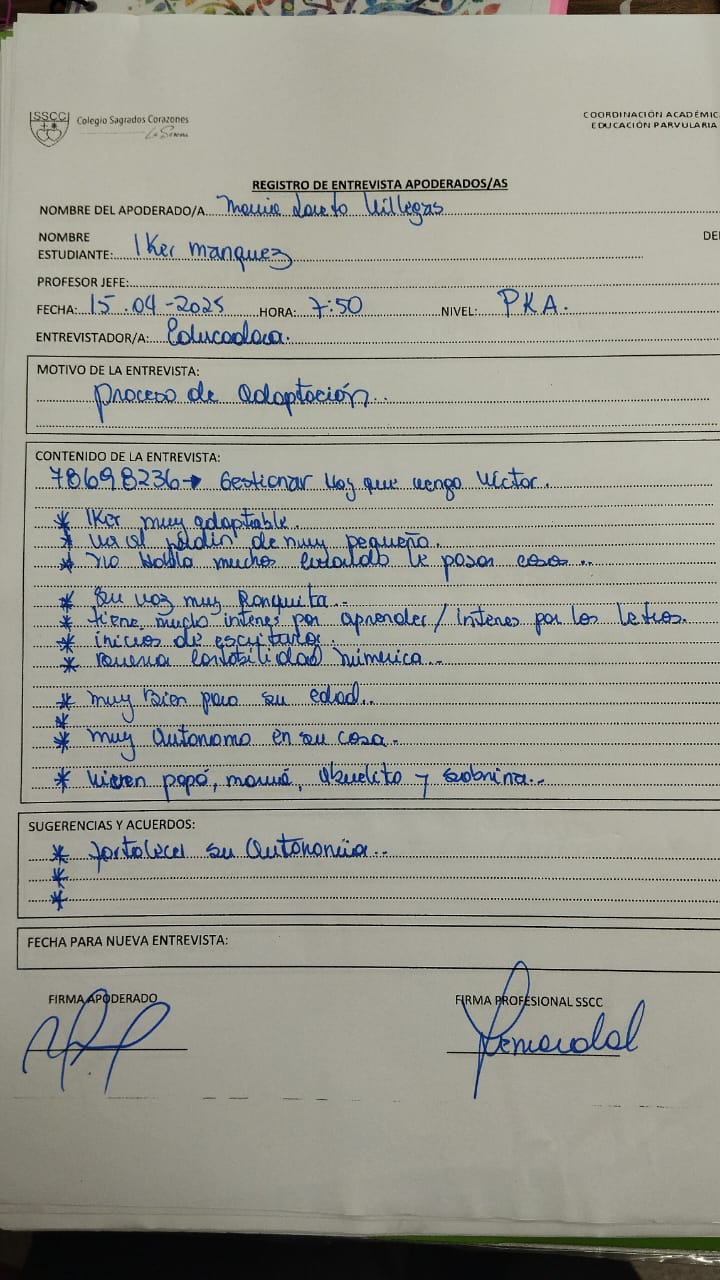 SSCC
Colegio Sagrados Corazones
La Serena
COORDINACIÓN ACADÉMIC
EDUCACIÓN PARVULARIA
REGISTRO DE ENTREVISTA APODERADOS/AS
NOMBRE DEL APODERADO/A Maria Loreto Villegas
NOMBRE
ESTUDIANTE: Iker Manquez
DE
PROFESOR JEFE:
FECHA: 15.04-2025 HORA: 7:50 NIVEL: PKA.
ENTREVISTADOR/A: Educadora.
MOTIVO DE LA ENTREVISTA:
Proceso de Adaptación..
CONTENIDO DE LA ENTREVISTA:
78698236→ Gestionar Voz que venga Victor.
* Iker muy adaptable.
* va al jardin de muy pequeño.
* no habla mucho cuando le pasan cosas..
* Su voz muy Ronquita..
* tiene mucho interes por aprender / interes por las letras.
* inicios de escritura.
* Buena contabilidad númerica..
* muy bien para su edad..
*
* muy autonomo en su casa.
* viven papá, mamá, abuelito y sobrina..
SUGERENCIAS Y ACUERDOS:
* fortalecer su autonomia..
*
*
FECHA PARA NUEVA ENTREVISTA:
FIRMA APODERADO
FIRMA PROFESIONAL SSCC